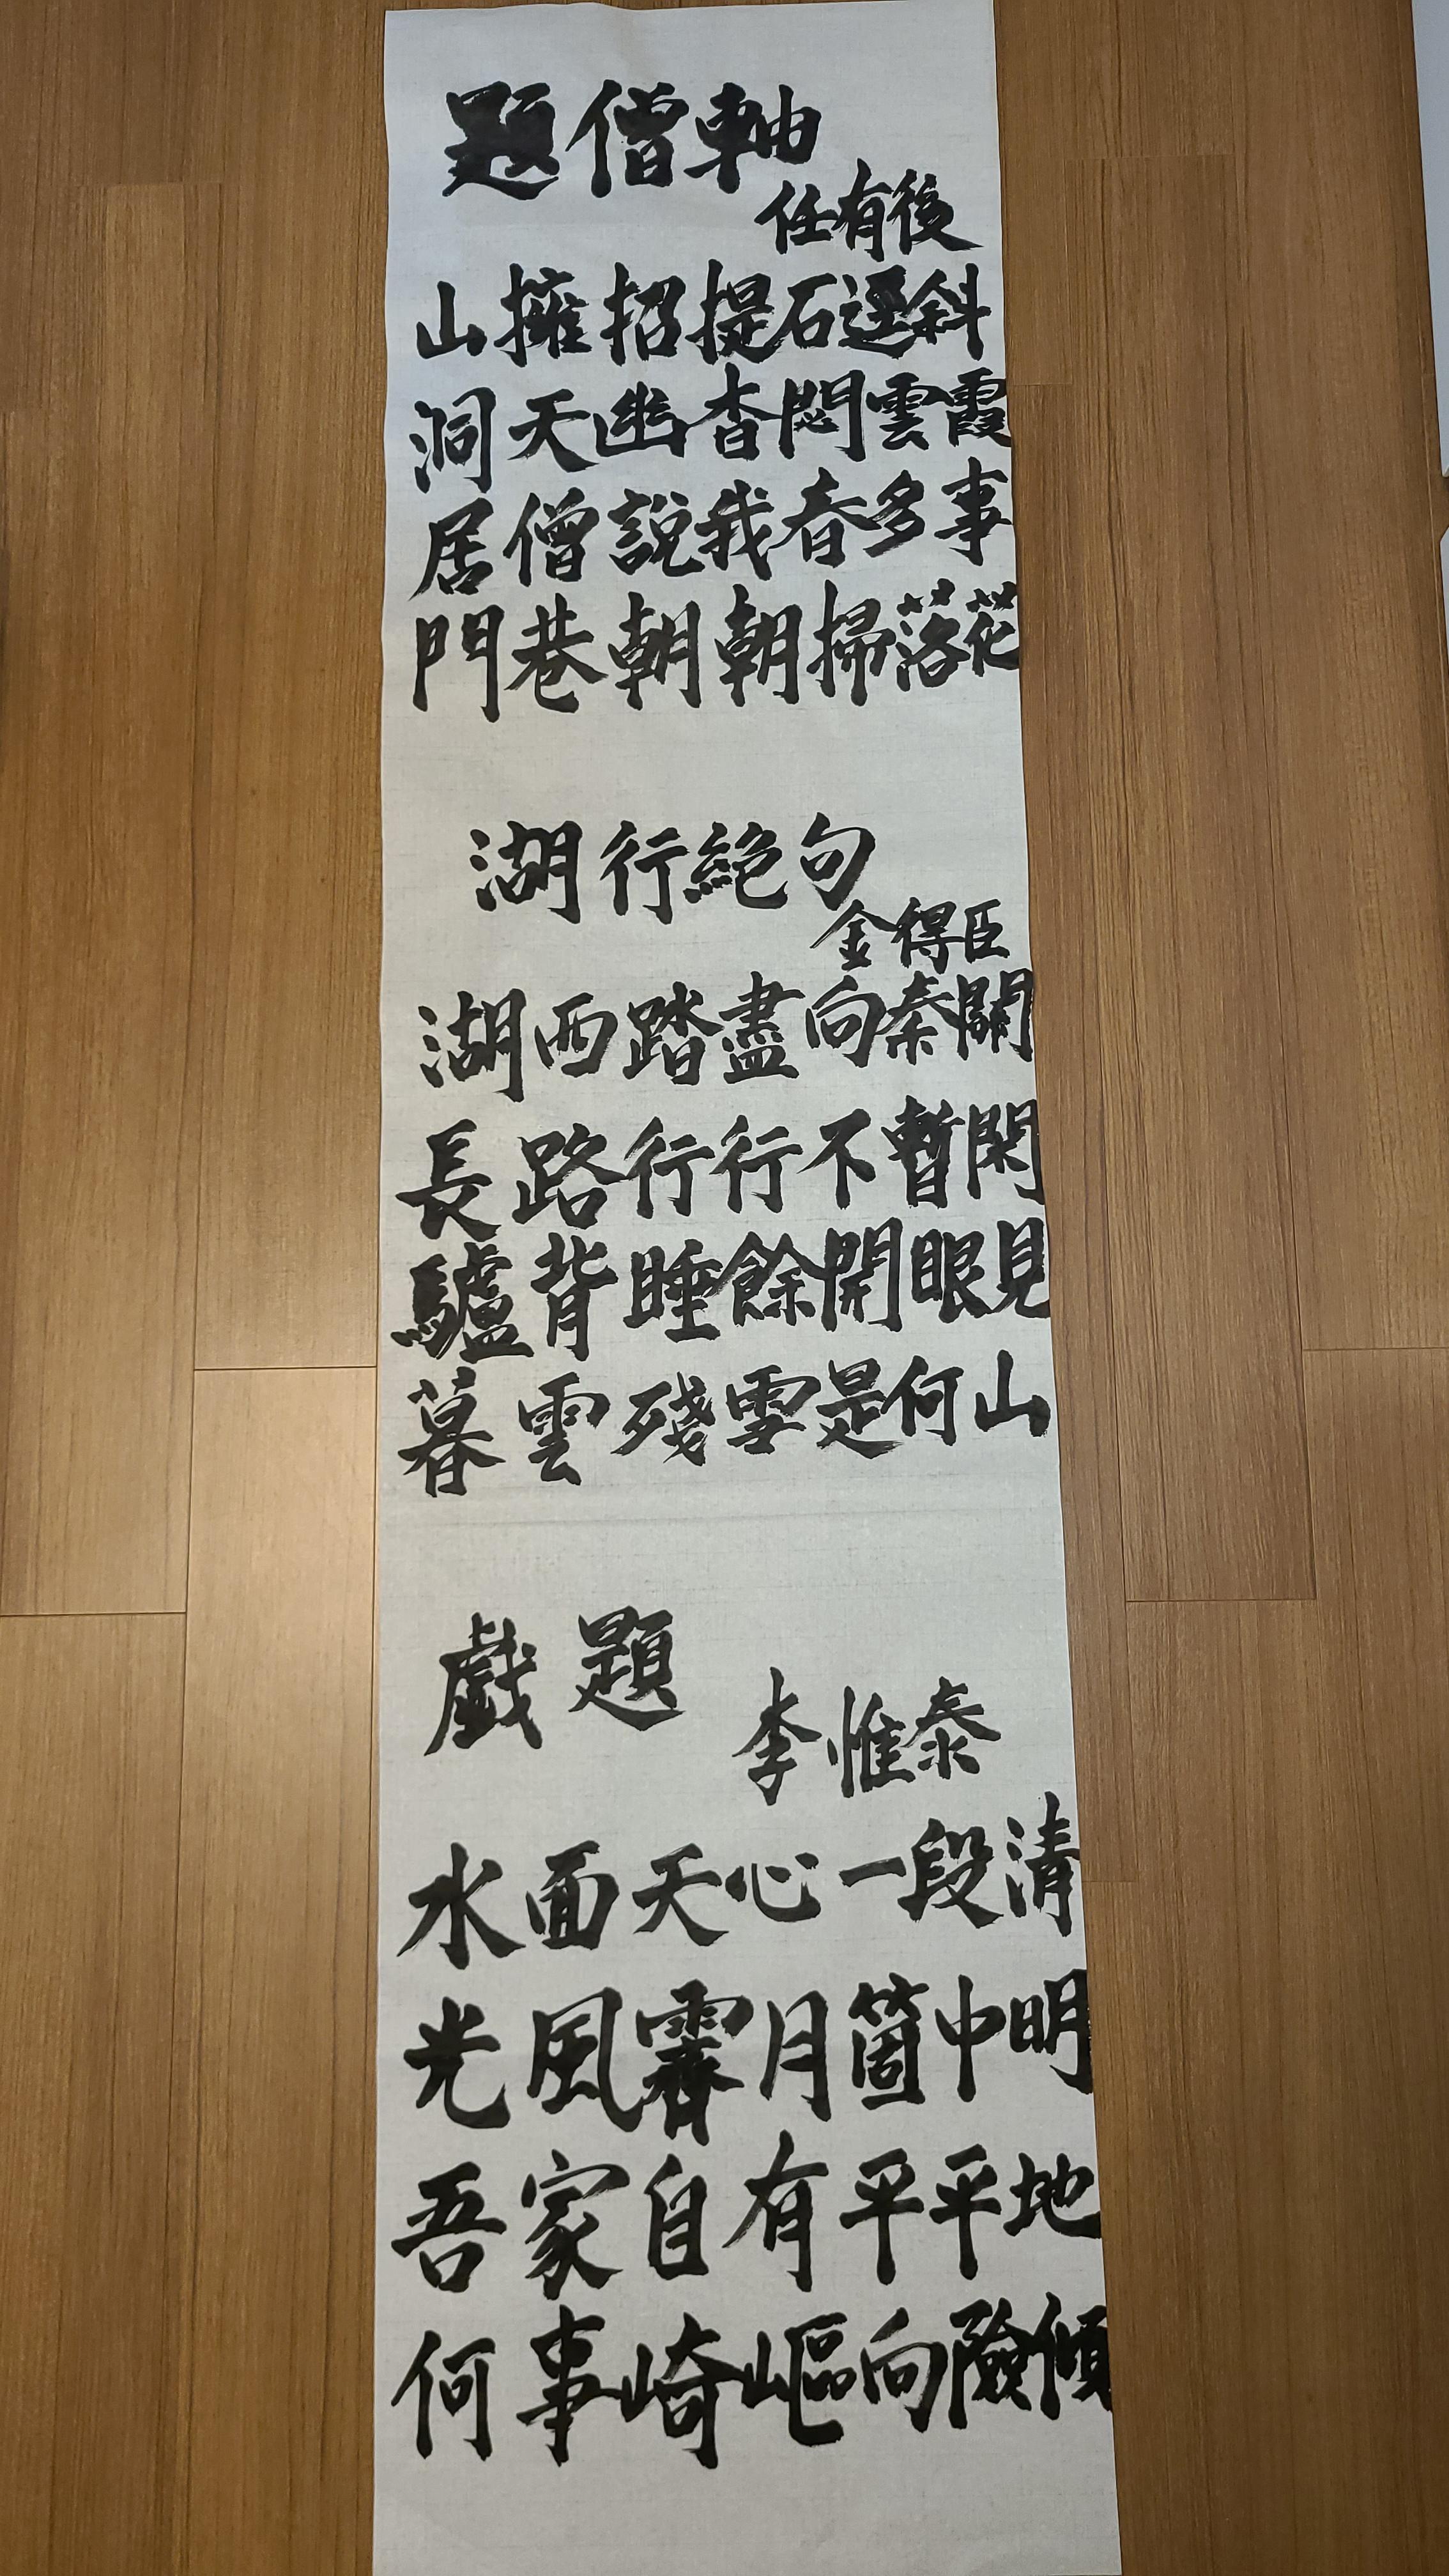 題僧軸
任有後
山擁招提石逕斜
洞天幽杳閟雲霞
居僧說我春多事
門巷朝朝掃落花
湖行絶句
金得臣
湖西踏盡向秦關
長路行行不暫閑
驢背睡餘開眼見
暮雲殘雪是何山
戲題
李惟泰
水面天心一段清
光風霽月箇中明
吾家自有平平地
何事崎嶇向險傾